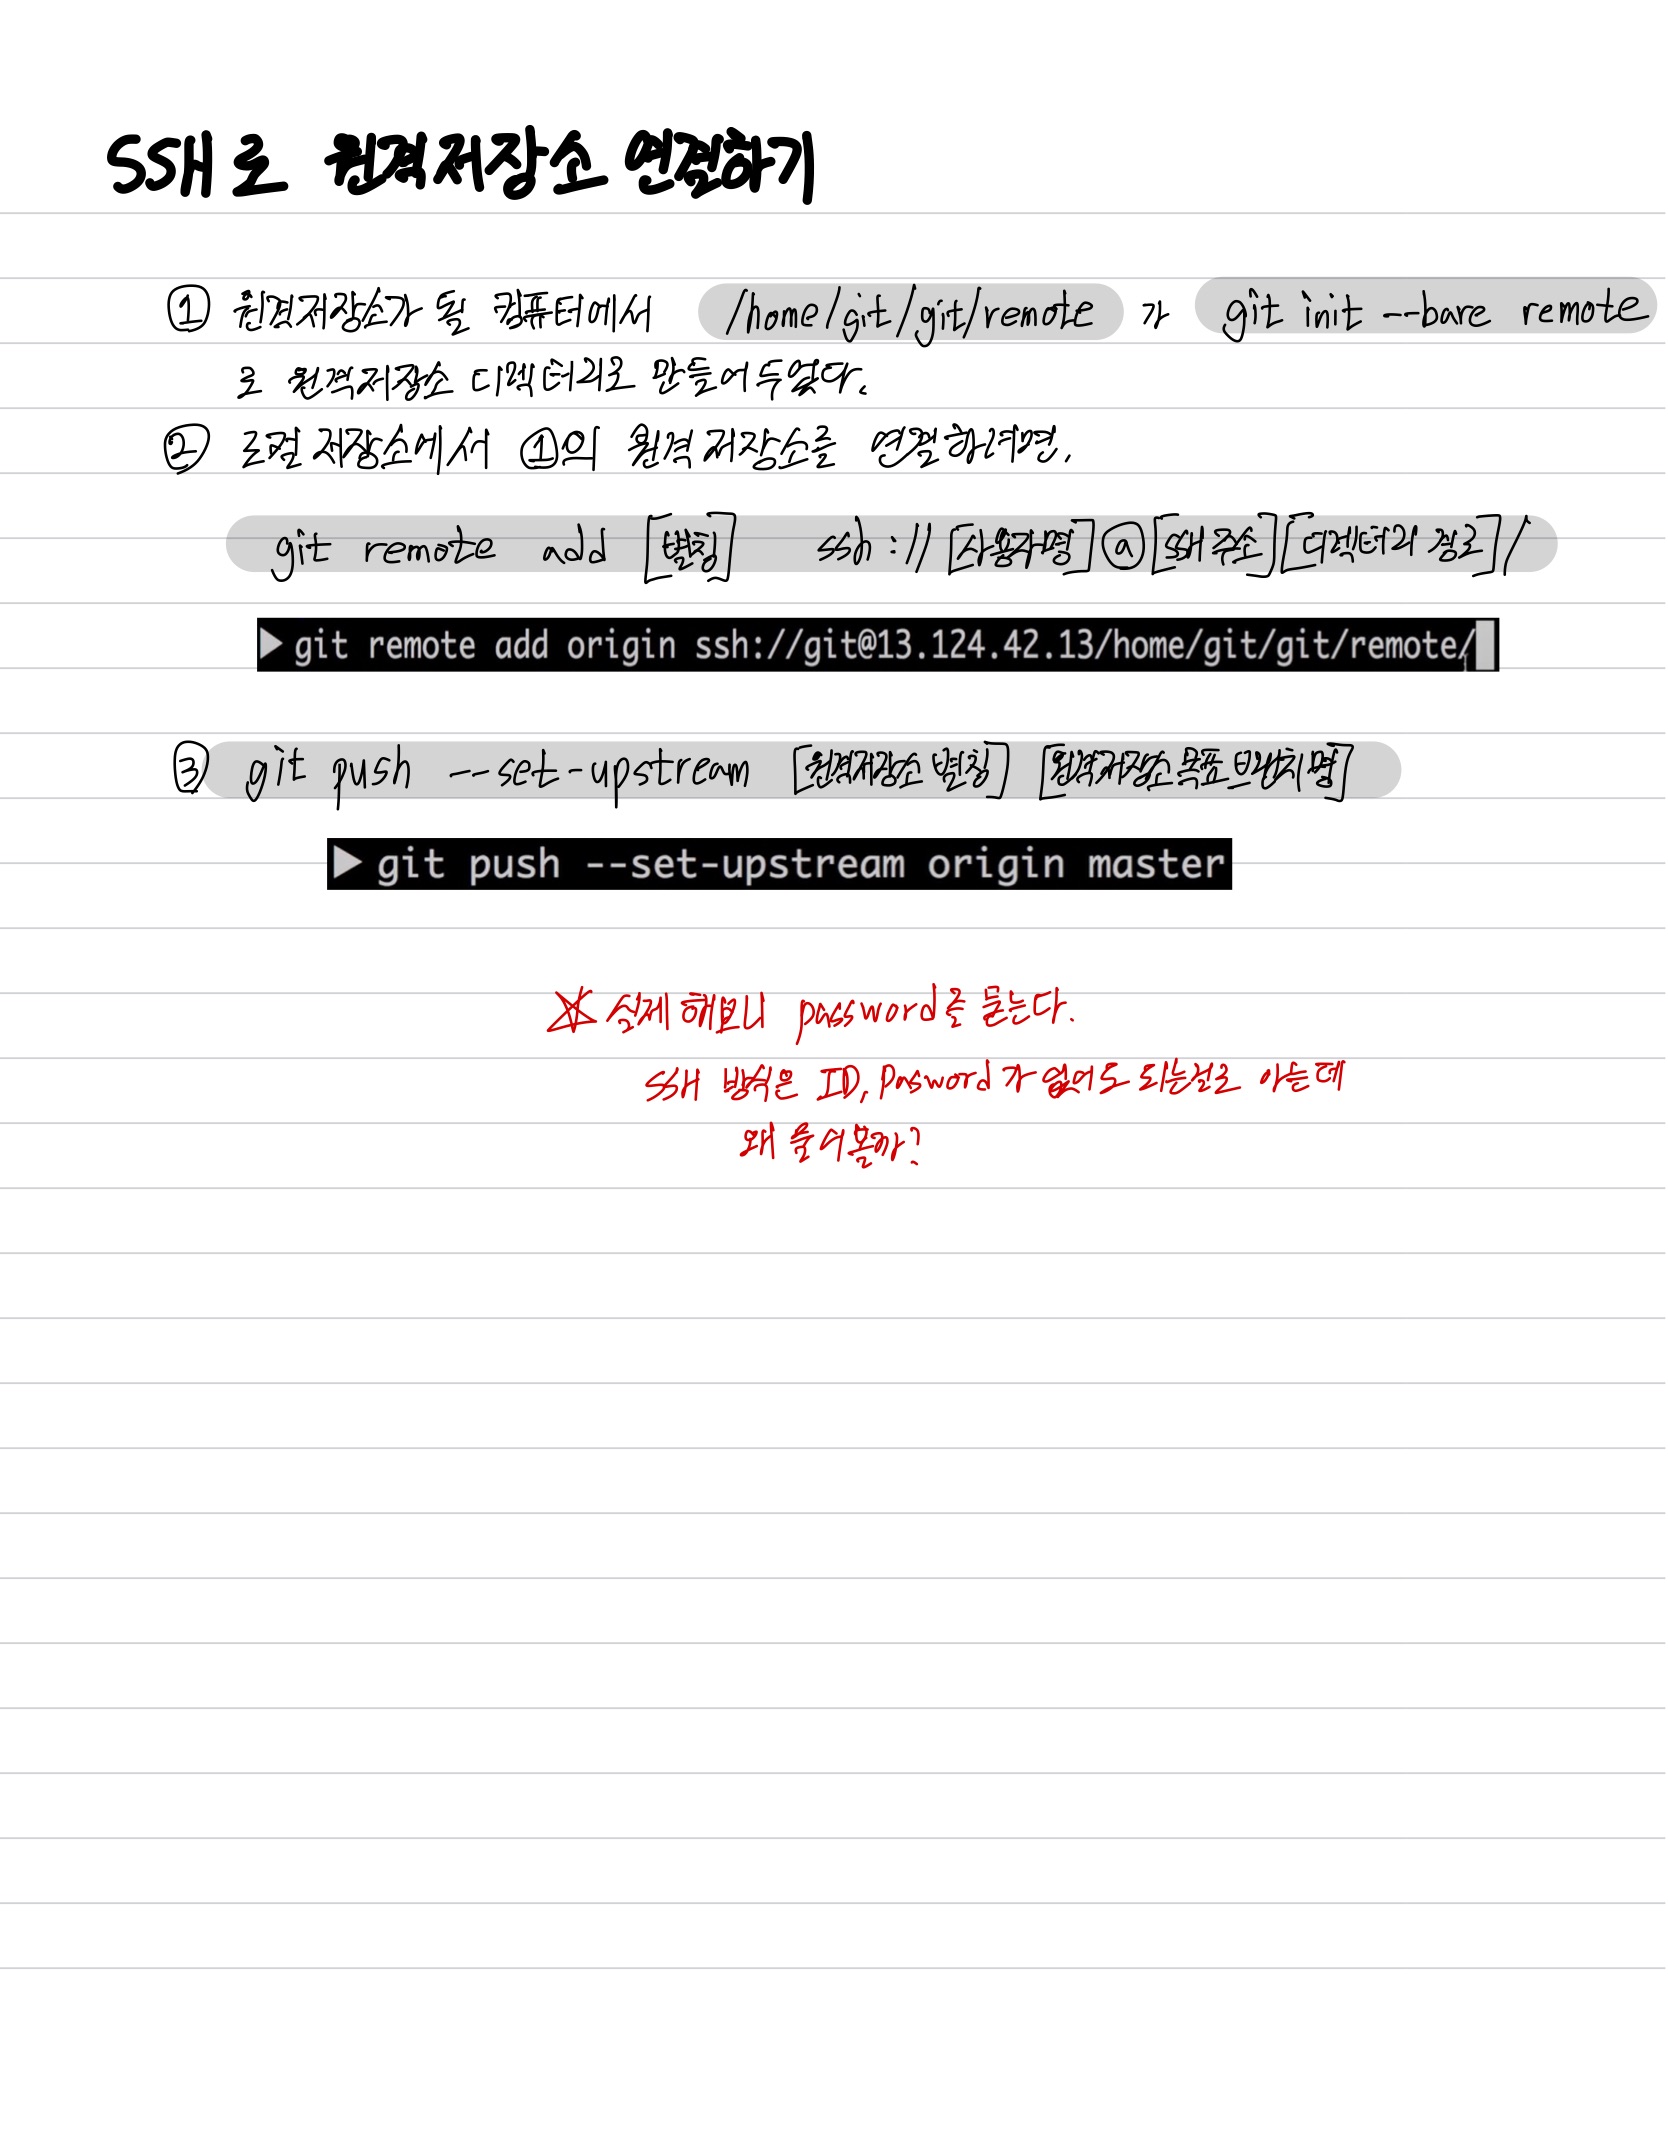 SSH로 원격저장소 연결하기
① 원격저장소가 될 컴퓨터에서 /home/git/git/remote 가 git init --bare remote
로 원격저장소 디렉터리로 만들어두었다.
② 로컬 저장소에서 ①의 원격저장소를 연결하려면,
git remote add [별칭] ssh://[사용자명]@[SSH주소][디렉터리 경로]/
▶git remote add origin ssh://git@13.124.42.13/home/git/git/remote/
③ git push --set-upstream [원격저장소 별칭] [원격저장소 목표 브랜치명]
▶git push --set-upstream origin master
☆ 실제 해보니 password를 묻는다.
SSH 방식은 ID, Pasword가 없어도 되는걸로 아는데
왜 물어볼까?